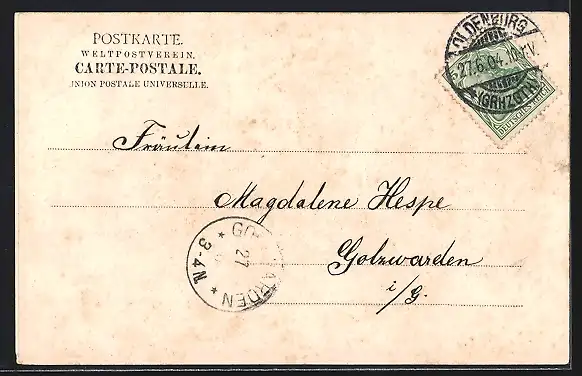 POSTKARTE.
WELTPOSTVEREIN.
CARTE-POSTALE.
UNION POSTALE UNIVERSELLE.
OLDENBURG
27.6.04.
(GRHZGTH.)
DEUTSCHES REICH
Fräulein
Magdalene Hespe
Golzwarden
i/G.
GOLZWARDEN
27
3-4N